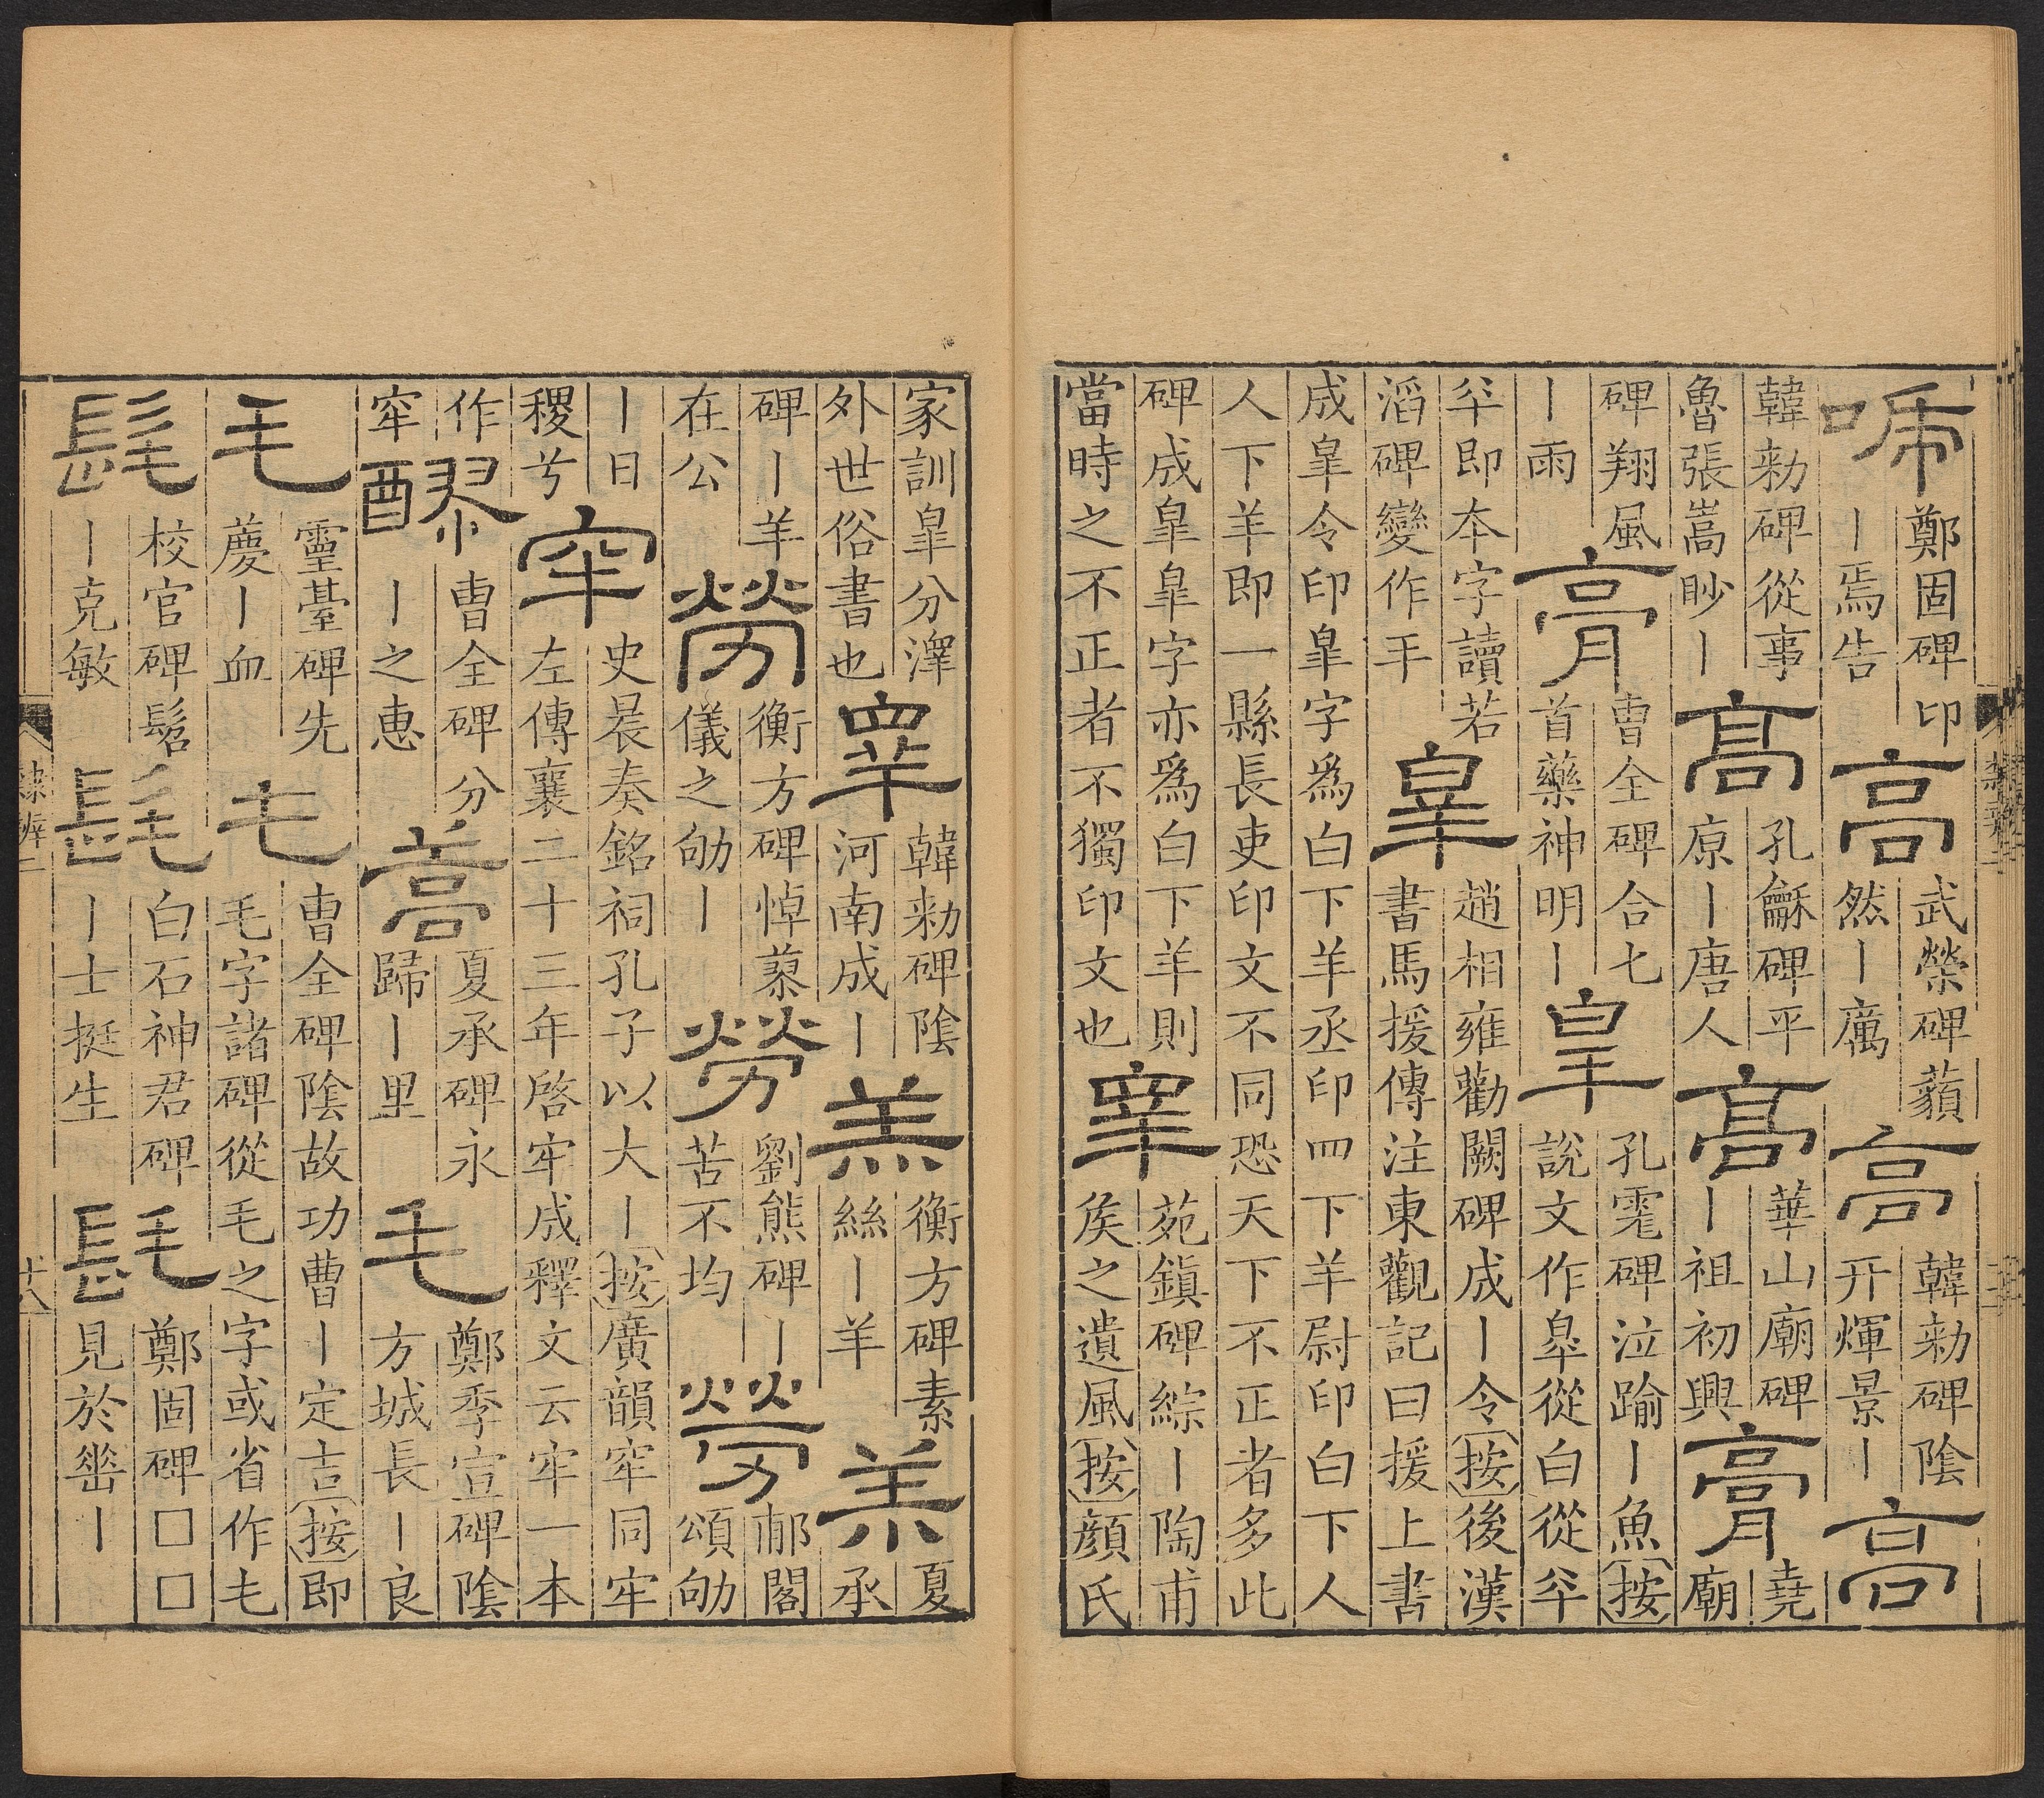 啼鄭固碑印丨焉告高武榮碑蘋然丨厲高韓勑碑陰开煇景丨高
韓勑碑從事魯張嵩眇丨髙孔龢碑平原丨唐人髙華山廟碑丨祖初興膏堯廟
碑翔風丨雨膏曹全碑合七首藥神明丨皇孔碑泣踰丨魚按說文作皋從白從夲
夲即本字讀若滔碑變作羊皐趙相雍勸闕碑成丨令按後漢書馬援傳注東觀記曰援上書
成皐令印皐字爲白下羊丞印四下羊尉印白下人人下羊即一縣長吏印文不同恐天下不正者多此
碑成皐皐字亦爲白下羊則當時之不正者不獨印文也睪苑鎮碑綜丨陶甫侯之遺風按顏氏
家訓皐分澤外世俗書也睪韓勑碑陰河南成丨羔衡方碑素絲丨羊羔夏承
碑丨羊在公勞衡方碑悼蓼儀之劬丨勞劉熊碑丨苦不均勞郙閣頌劬
丨日稷兮窂史晨奏銘祠孔子以大丨按廣韻窂同牢左傳襄二十三年啓牢成釋文云牢一本
作窂醪曹全碑分丨之惠蒿夏承碑永歸丨里毛鄭季宣碑陰方城長丨良
毛靈臺碑先慶丨血毛曹全碑陰故功曹丨定吉按即毛字諸碑從毛之字或省作乇
髦校官碑髫丨克敏髦白石神君碑丨士挺生髦鄭固碑□□見於丨
隸辨二 十八